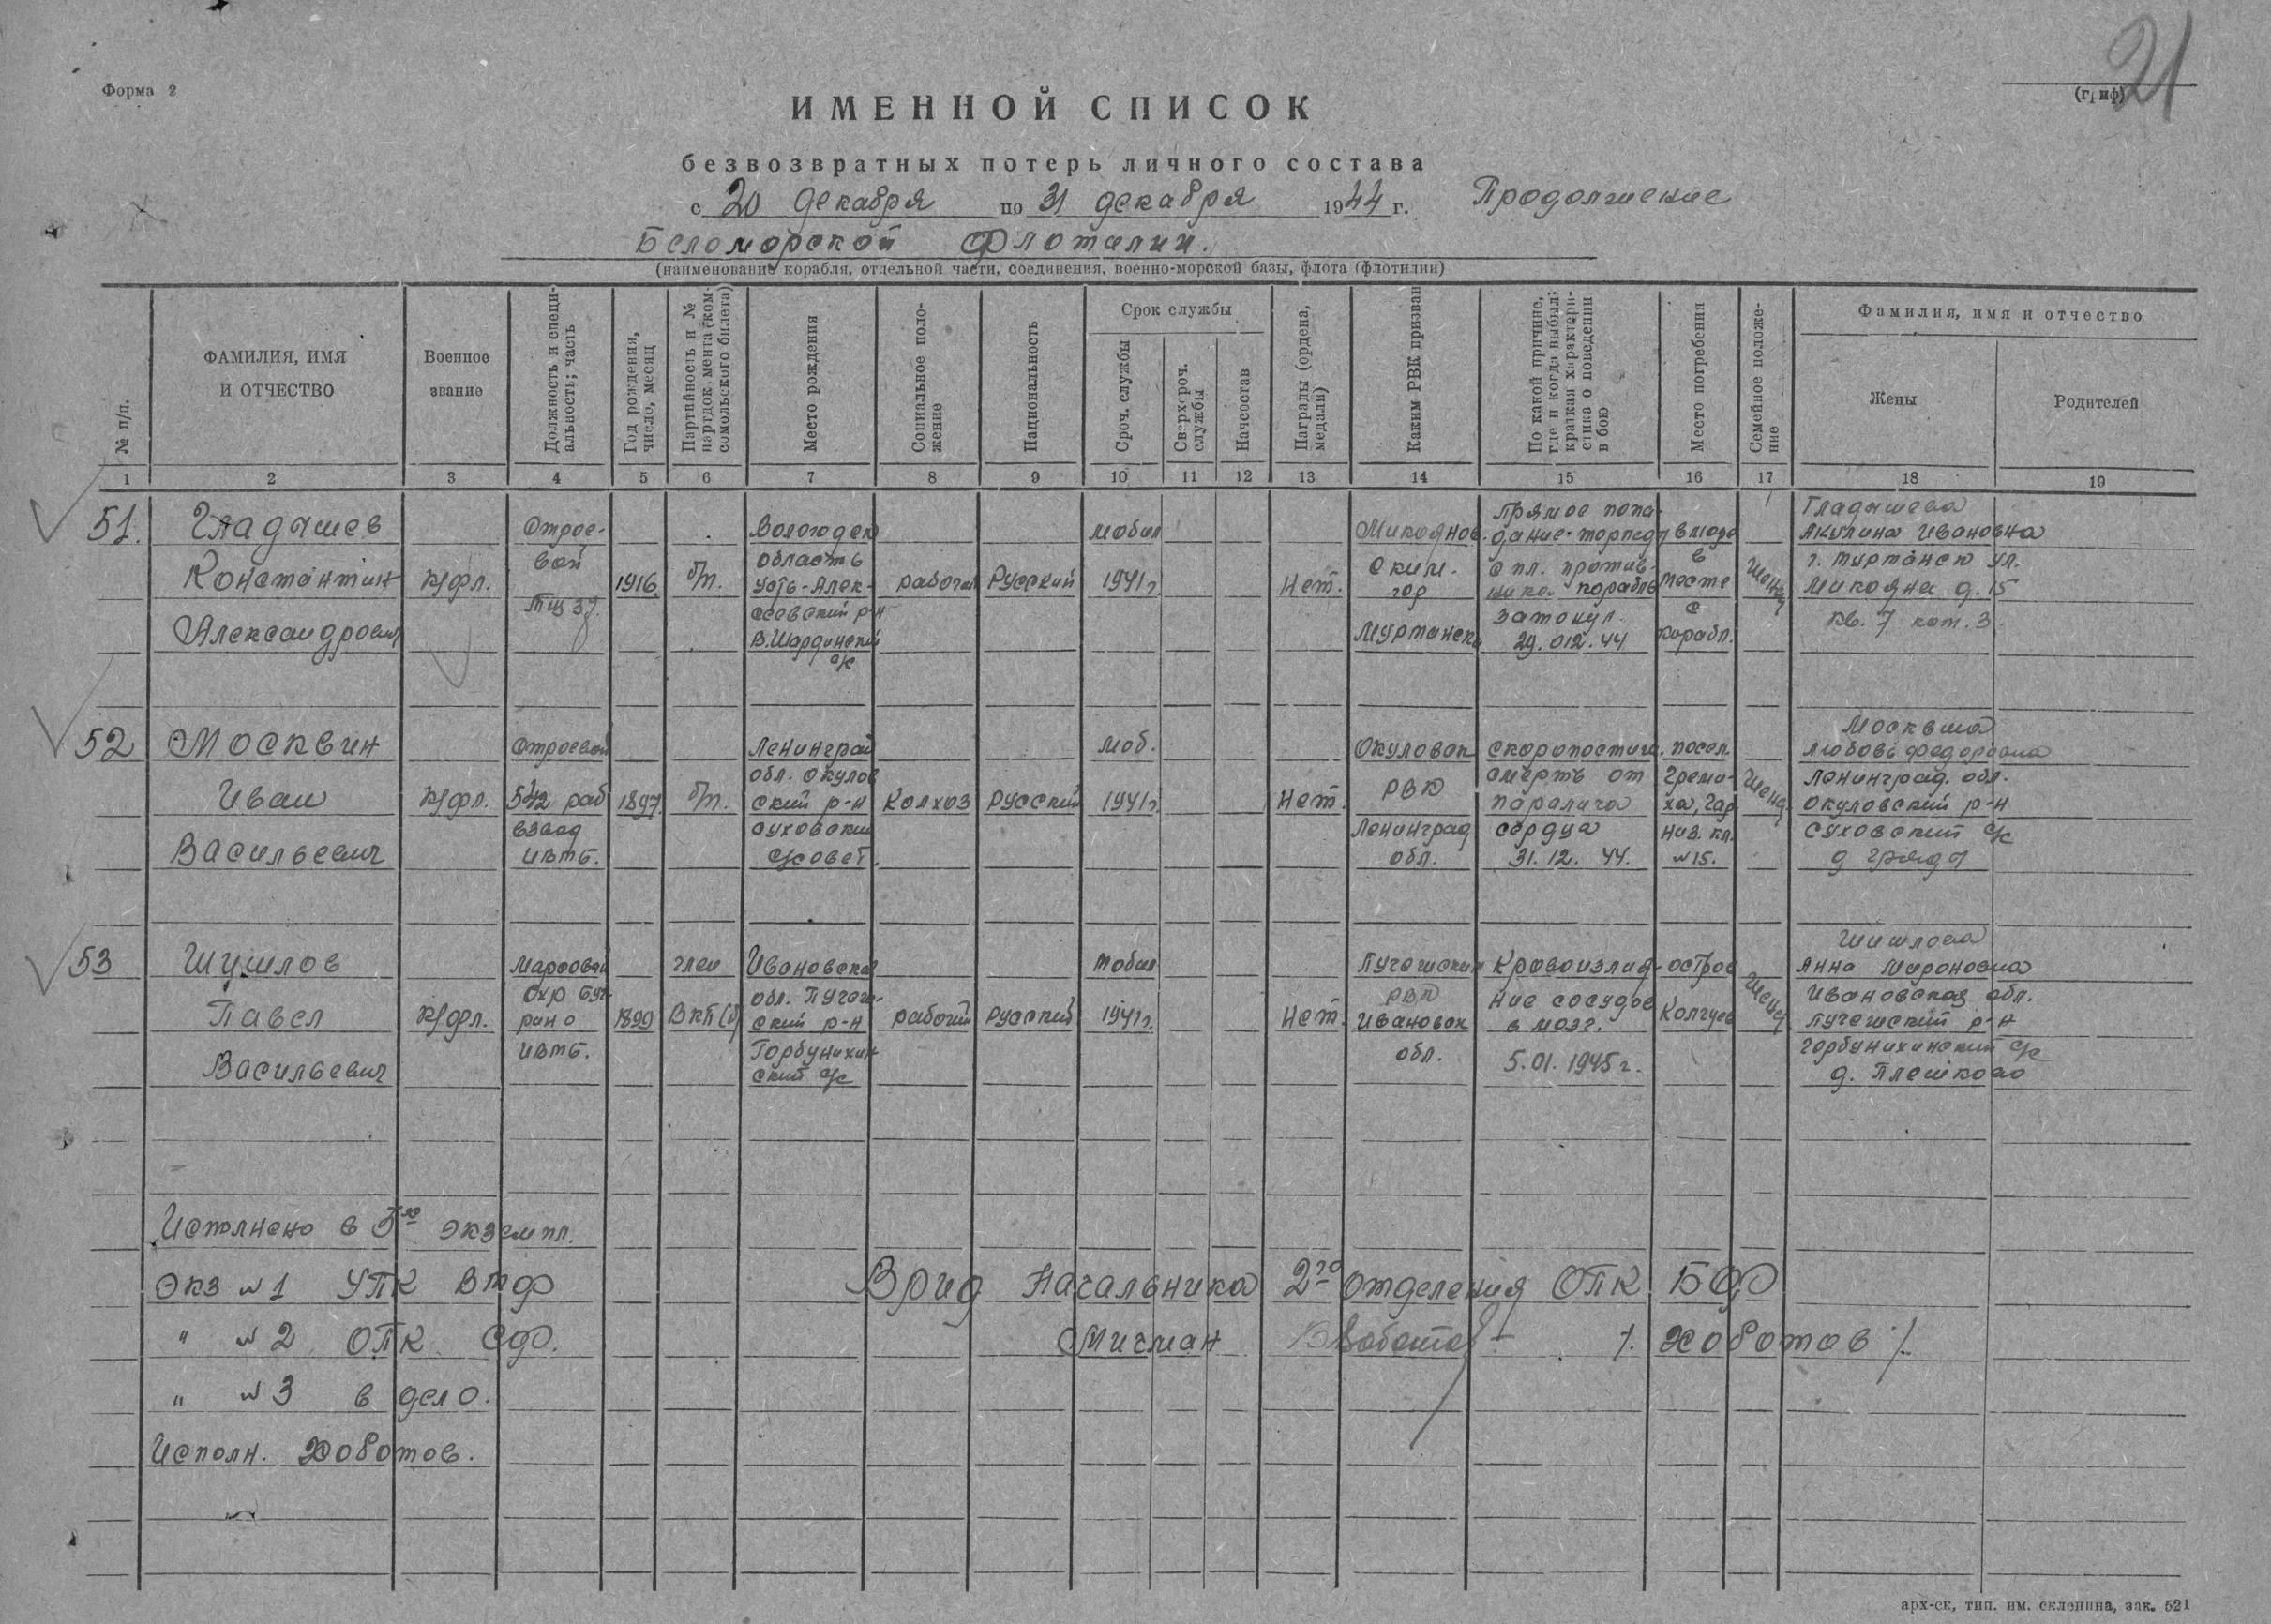 21
Форма 2
(гриф)
ИМЕННОЙ СПИСОК
безвозвратных потерь личного состава
с 20 декабря по 31 декабря 1944 г. Продолжение
Беломорской Флотилии.
(наименование корабля, отдельной части, соединения, военно-морской базы, флота (флотилии)
№ п/п.
ФАМИЛИЯ, ИМЯ
И ОТЧЕСТВО
Военное
звание
Должность и специ-
альность; часть
Год рождения,
число, месяц
Партийность и №
партдокумента (ком-
сомольского билета)
Место рождения
Социальное поло-
жение
Национальность
Срок службы
Сроч. службы
Сверхсроч.
службы
Начсостав
Награды (ордена,
медали)
Каким РВК призван
По какой причине,
где и когда выбыл;
краткая характери-
стика о поведении
в бою
Место погребения
Семейное положе-
ние
Фамилия, имя и отчество
Жены
Родителей
1 2 3 4 5 6 7 8 9 10 11 12 13 14 15 16 17 18 19
51. Гладышев
Константин
Александрович
К/фл.
Строе-
вой
ТЩ 37
1916
б/п.
Вологодск
область
Усть-Алек-
сеевский р-н
В.Шарденский
с/с
рабочий
Русский
мобил
1941 г
Нет.
Микоянов.
ским.
гор
Мурманска
Прямое попа-
дание торпеды
с пл. против-
ника корабль
затонул.
29.012.44
в море
в
месте
с
корабл.
Женат
Гладышева
Акулина Ивановна
г. Мурманск ул.
Микояна д.15
кв. 7 ком. 3.
52 Москвин
Иван
Васильевич
К/фл.
Строевой
542 раб
взвод
ИВМБ.
1897.
б/п.
Ленинград
обл. Окулов
ский р-н
Суховский
с/совет.
Колхоз
Русский
моб.
1941г.
Нет.
Окуловск
РВК
Ленинград
обл.
Скоропостиж.
смерть от
паралича
сердца
31.12.44.
посел.
Греми-
ха, гар
низ. кл.
№15.
Женат
Москвина
Любовь Федоровна
Ленинград. обл.
Окуловский р-н
Суховский с/с
53 Шушлов
Павел
Васильевич
К/фл.
Марсовый
ИВМБ.
1899
член
ВКП(б)
Ивановская
обл. Пучеж-
ский р-н
Горбунихин
ский с/с
рабочий
Русский
мобил
1941г.
Нет.
Пучежским
РВК
Ивановск
обл.
Кровоизлия-
ние сосудов
в мозг.
5.01.1945 г.
остров
Колгуев
Женат
Шишлова
Анна Мироновна
Ивановская обл.
Пучежский р-н
Горбунихинский с/с
д. Плешково
Исполнено в 3х экземпл.
Экз №1 УПК ВМФ
" №2 ОПК СФ.
" №3 в дело.
Исполн. Хоботов.
Врид Начальника 2го отделения ОПК БФ
Мичман Хоботов /. Хоботов /.
арх-ск, тип. им. Склепина, зак. 521